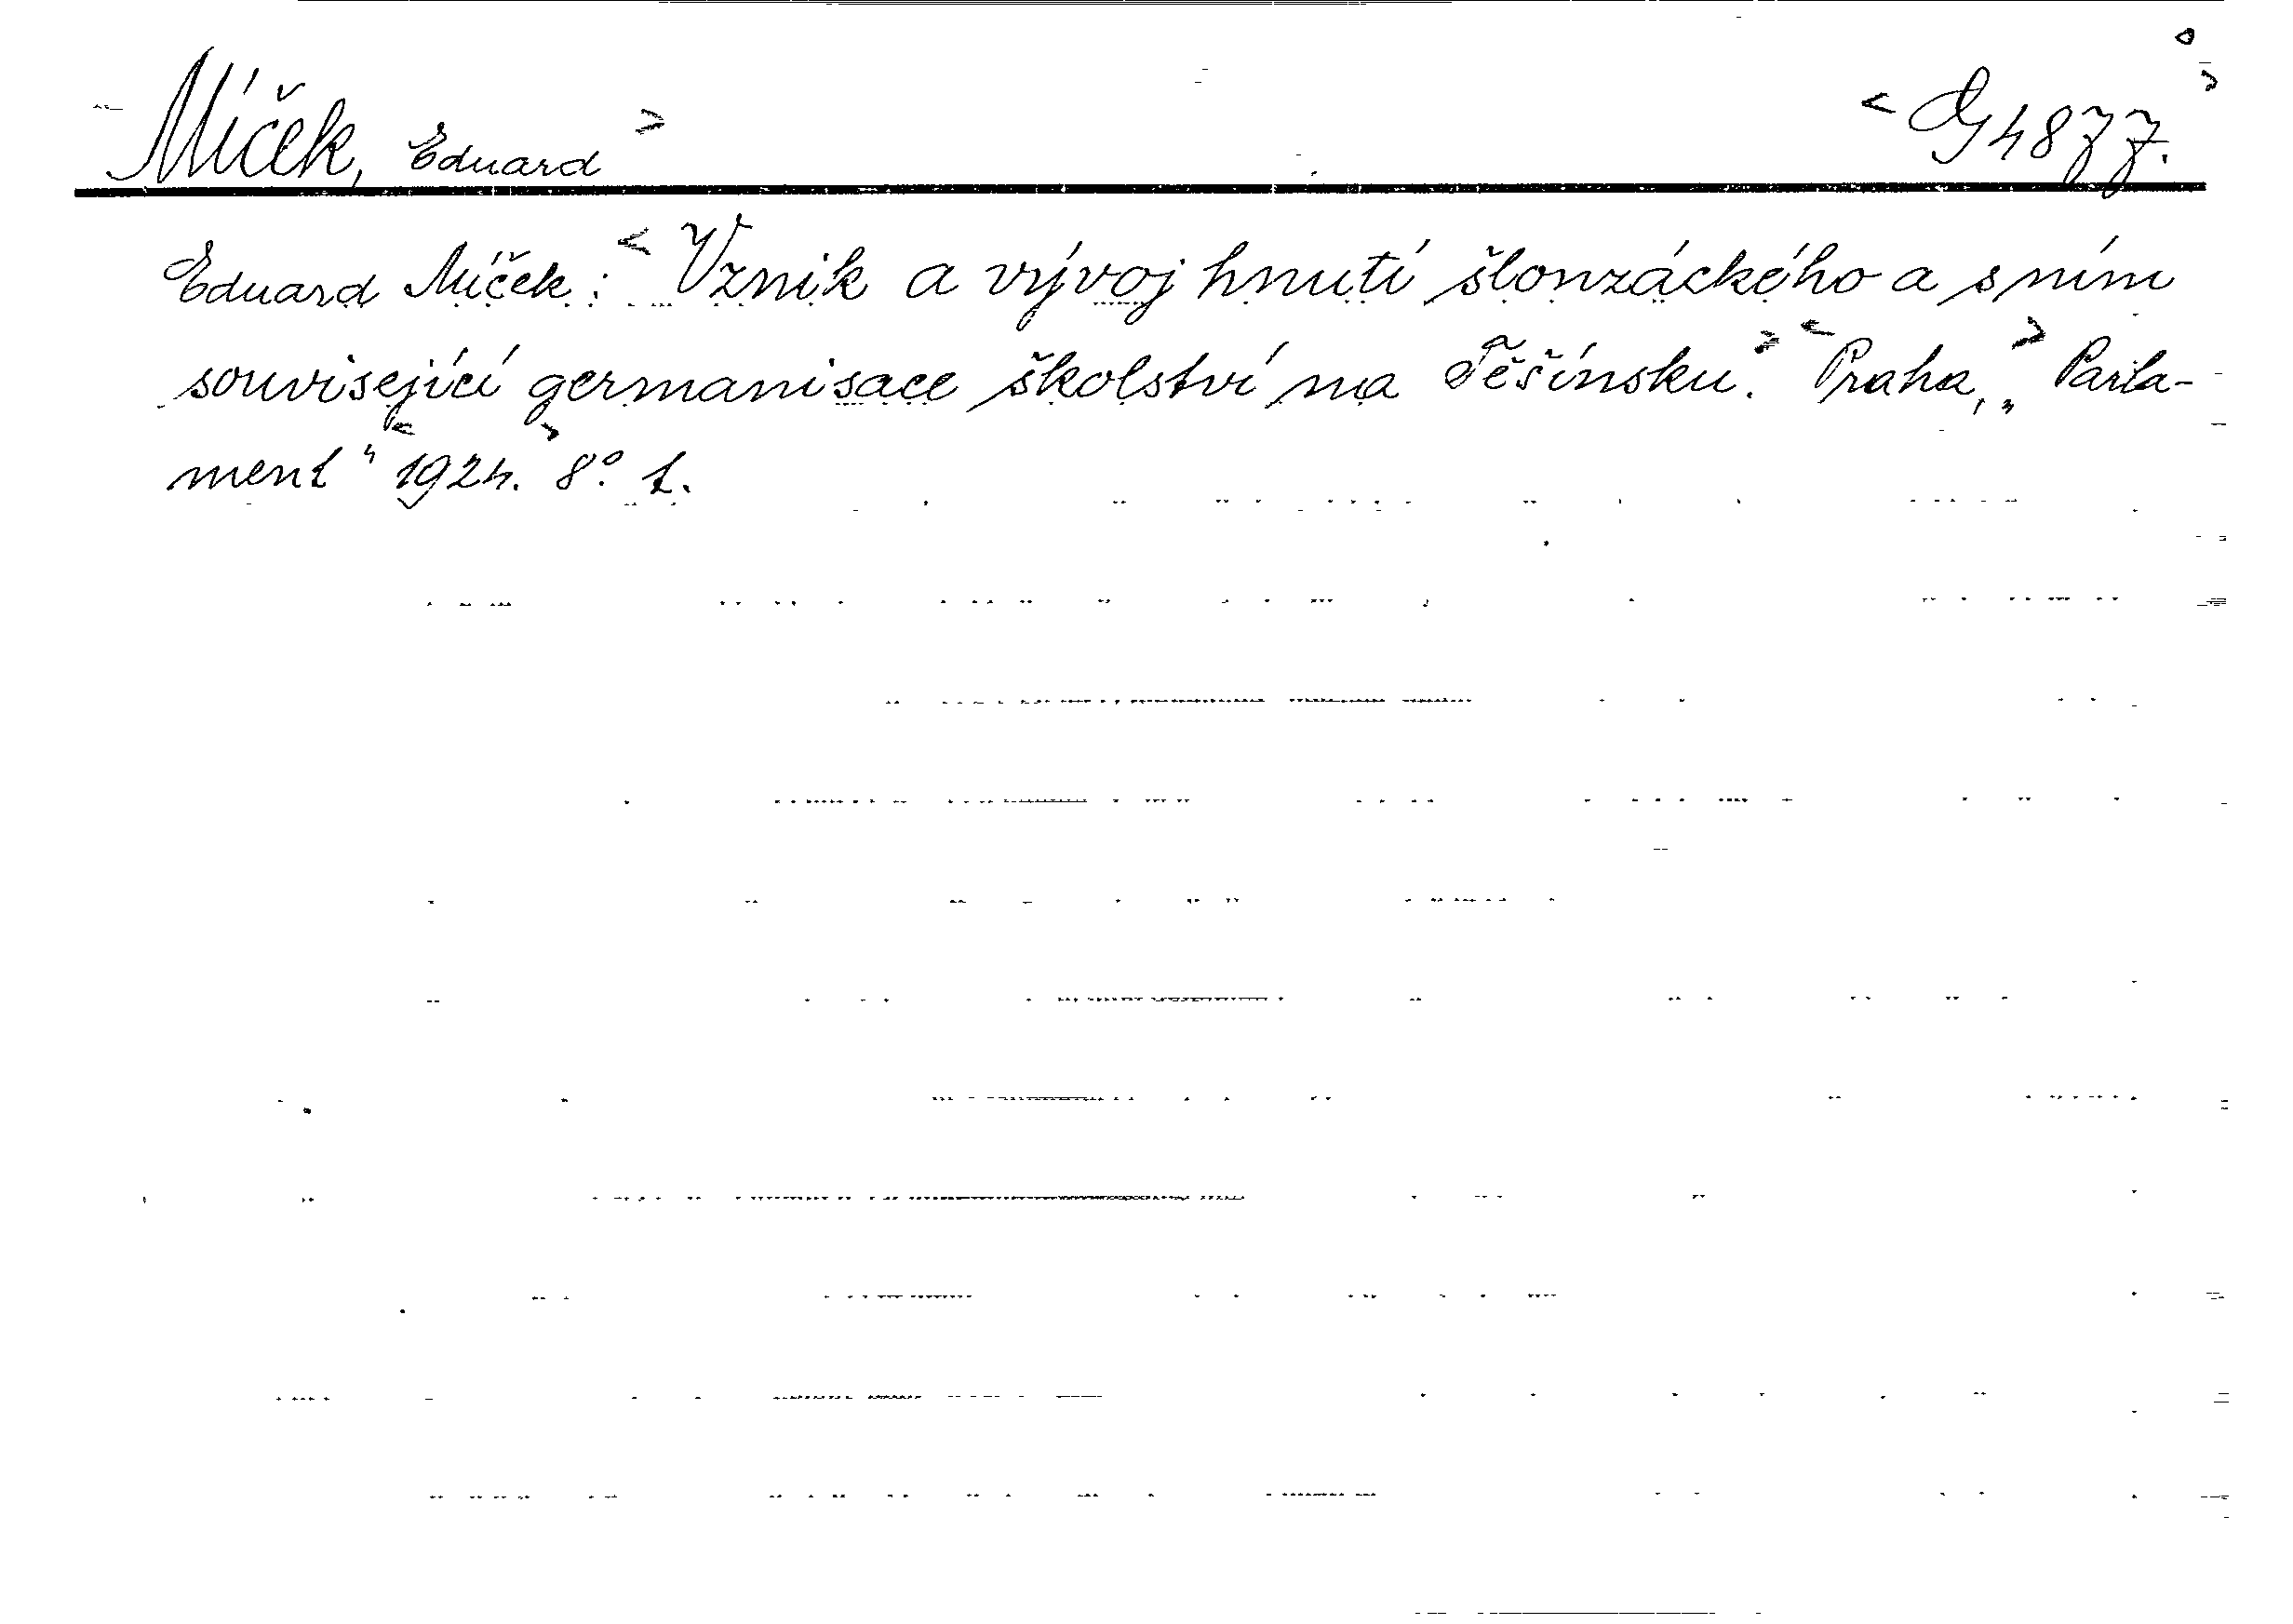 Míček, Eduard > < G 4877. >
Eduard Míček: < Vznik a vývoj hnutí šlonzáckého a s ním
související germanisace školství na Těšínsku. > < Praha, > „Parla-
ment“ < 1924. > 8° 1.